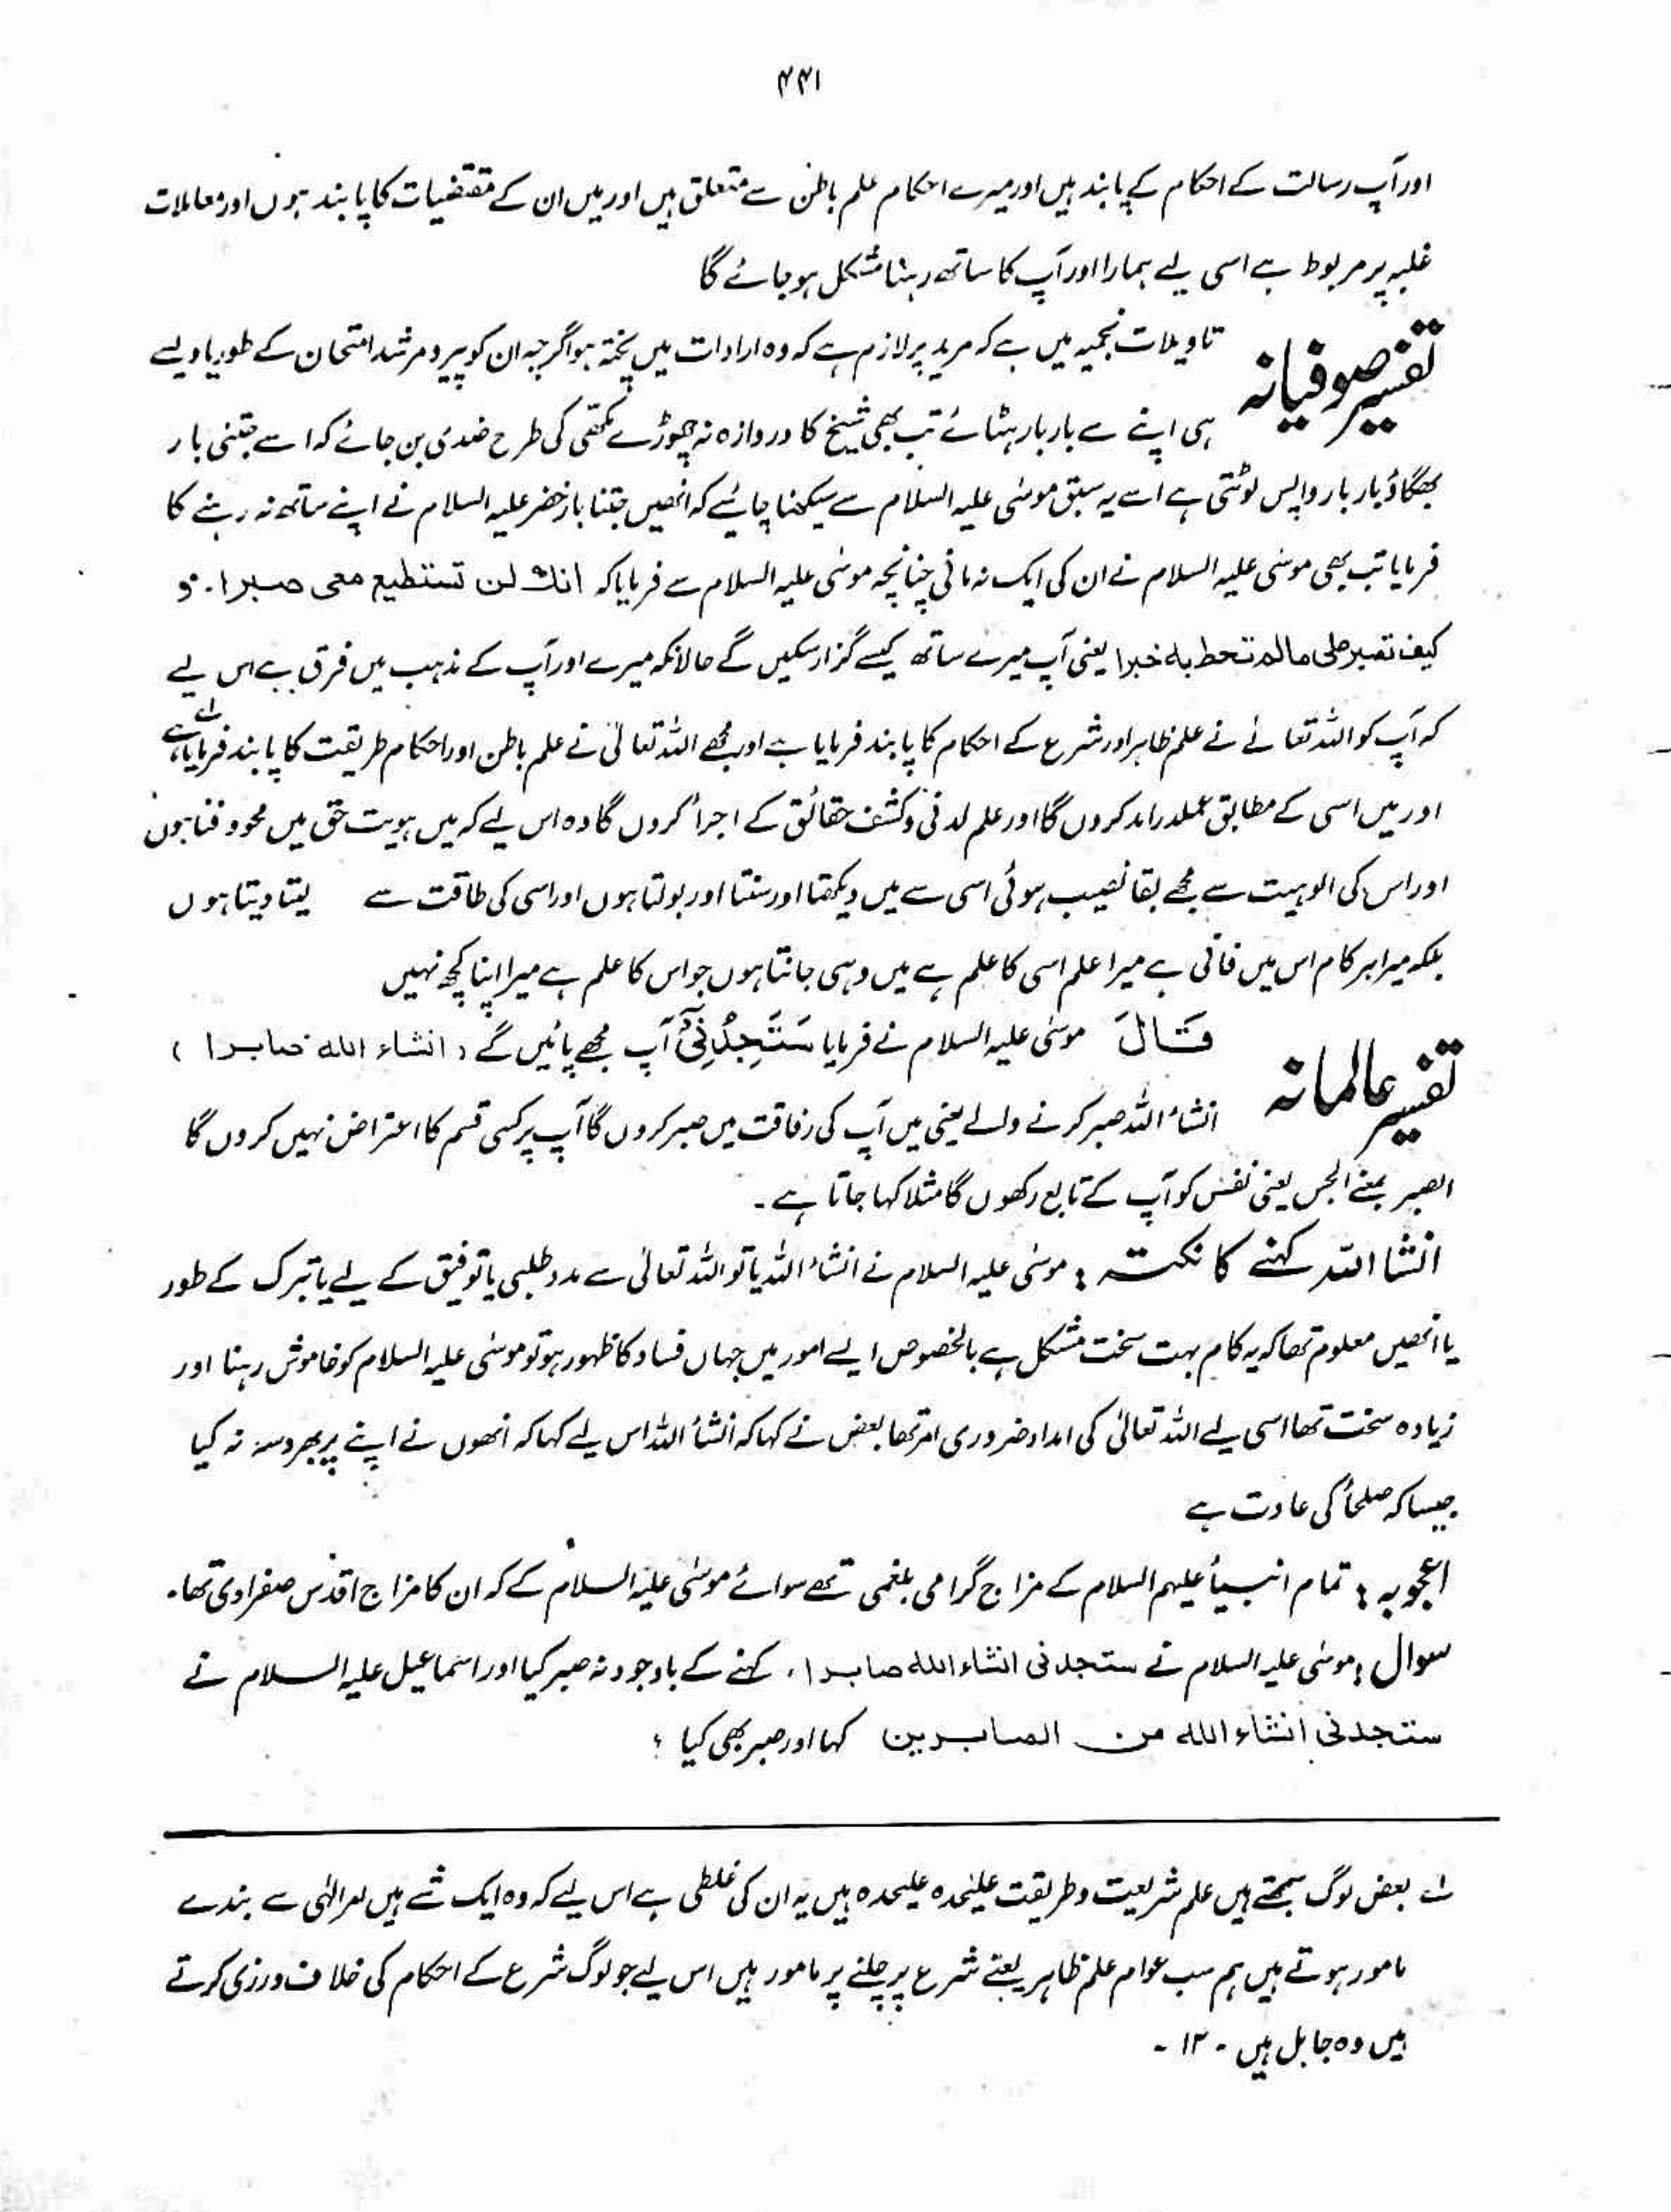 ۴۴۱
اور آپ رسالت کے احکام کے پابند ہیں اور میرے احکام علم باطن سے متعلق ہیں اور میں ان کے مقتضیات کا پابند ہوں اور معاملات
غلبہ پر مربوط ہے اسی لیے ہمارا اور آپ کا ساتھ رہنا مشکل ہو جائے گا
تفسیر صوفیانہ
تاویلات نجمیہ میں ہے کہ مرید پر لازم ہے کہ وہ ارادات میں پختہ ہو اگرچہ ان کو پیر و مرشد امتحان کے طور یا ویسے
ہی اپنے سے بار بار ہٹائے تب بھی شیخ کا دروازہ نہ چھوڑے مکھی کی طرح ضدی بن جائے کہ اسے جتنی بار
بھگاؤ بار بار واپس لوٹتی ہے اسے یہ سبق موسٰی علیہ السلام سے سیکھنا چاہئے کہ انھیں جتنا بار خضر علیہ السلام نے اپنے ساتھ نہ رہنے کا
فرمایا تب بھی موسٰی علیہ السلام نے ان کی ایک نہ مانی چنانچہ موسٰی علیہ السلام سے فرمایا کہ انک لن تستطیع معی صبرا۔ و
کیف تصبر علی مالم تحط بہ خبرا یعنی آپ میرے ساتھ کیسے گزار سکیں گے حالانکہ میرے اور آپ کے مذہب میں فرق ہے اس لیے
کہ آپ کو اللہ تعالے نے علم ظاہر اور شرع کے احکام کا پابند فرمایا ہے اور مجھے اللہ تعالیٰ نے علم باطن اور احکام طریقت کا پابند فرمایا ہے ؎
اور میں اسی کے مطابق عملدرامد کروں گا اور علم لدنی و کشف حقائق کے اجرأ کروں گا وہ اس لیے کہ میں ہویت حق میں محو و فنا ہوں
اور اس کی الوہیت سے مجھے بقا نصیب ہوئی اسی سے میں دیکھتا اور سنتا اور بولتا ہوں اور اسی کی طاقت سے لیتا دیتا ہوں
بلکہ میرا ہر کام اس میں فانی ہے میرا علم اسی کا علم ہے میں وہی جانتا ہوں جو اس کا علم ہے میرا اپنا کچھ نہیں
تفسیر عالمانہ
قَالَ موسٰی علیہ السلام نے فرمایا سَتَجِدُنِیْٓ آپ مجھے پائیں گے (انشاء اللہ صابرا)
انشأ اللہ صبر کرنے والے یعنی میں آپ کی رفاقت میں صبر کروں گا آپ پر کسی قسم کا اعتراض نہیں کروں گا
الصبر بمعنے الحبس یعنی نفس کو آپ کے تابع رکھوں گا مثلا کہا جاتا ہے۔
انشا اللہ کہنے کا نکتہ : موسٰی علیہ السلام نے انشأ اللہ یا تو اللہ تعالیٰ سے مدد طلبی یا توفیق کے لیے یا تبرک کے طور
یا انھیں معلوم تھا کہ یہ کام بہت سخت مشکل ہے بالخصوص ایسے امور میں جہاں فساد کا ظہور ہو تو موسٰی علیہ السلام کو خاموش رہنا اور
زیادہ سخت تھا اسی لیے اللہ تعالیٰ کی امداد ضروری امر تھا بعض نے کہا کہ انشأ اللہ اس لیے کہا کہ انھوں نے اپنے پر بھروسہ نہ کیا
جیسا کہ صلحأ کی عادت ہے
اعجوبہ : تمام انبیأ علیہم السلام کے مزاج گرامی بلغمی تھے سوائے موسٰی علیہ السلام کے کہ ان کا مزاج اقدس صفراوی تھا۔
سوال : موسٰی علیہ السلام نے ستجدنی انشاء اللہ صابرا۔ کہنے کے باوجود نہ صبر کیا اور اسماعیل علیہ السلام نے
ستجدنی انشاء اللہ من الصابرین کہا اور صبر بھی کیا ؟
؎ بعض لوگ سمجھتے ہیں علم شریعت و طریقت علیٰحدہ علیحدہ ہیں یہ ان کی غلطی ہے اس لیے کہ وہ ایک شے ہیں امر الٰہی سے بندے
مامور ہوتے ہیں ہم سب عوام علم ظاہر یعنے شرع پر چلنے پر مامور ہیں اس لیے جو لوگ شرع کے احکام کی خلاف ورزی کرتے
ہیں وہ جاہل ہیں ۔ ۱۲ ۔